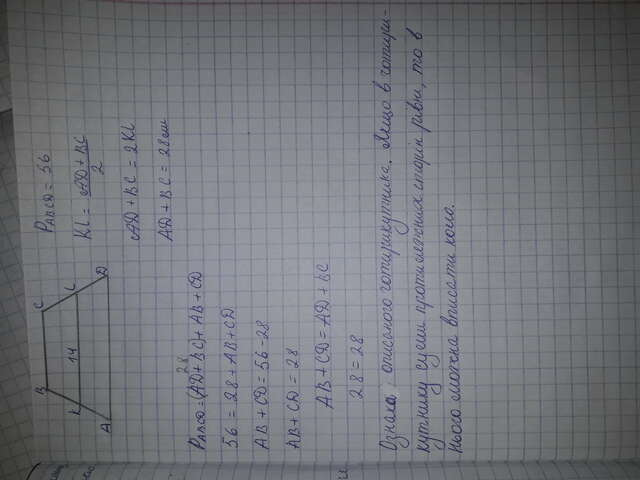 B C
K 14 L
A D
P_ABCD = 56
KL = AD + BC / 2
AD + BC = 2KL
AD + BC = 28см
28
P_ABCD = (AD + BC) + AB + CD
56 = 28 + AB + CD
AB + CD = 56 - 28
AB + CD = 28
AB + CD = AD + BC
28 = 28
Ознака описаного чотирикутника. Якщо в чотири-
кутнику суми протилежних сторін рівні, то в
нього можна вписати коло.